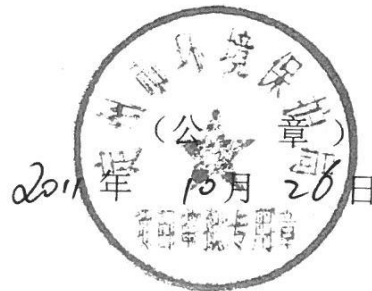 市环境保护局
（公 章）
2011年 10月 26日
项目审批专用章